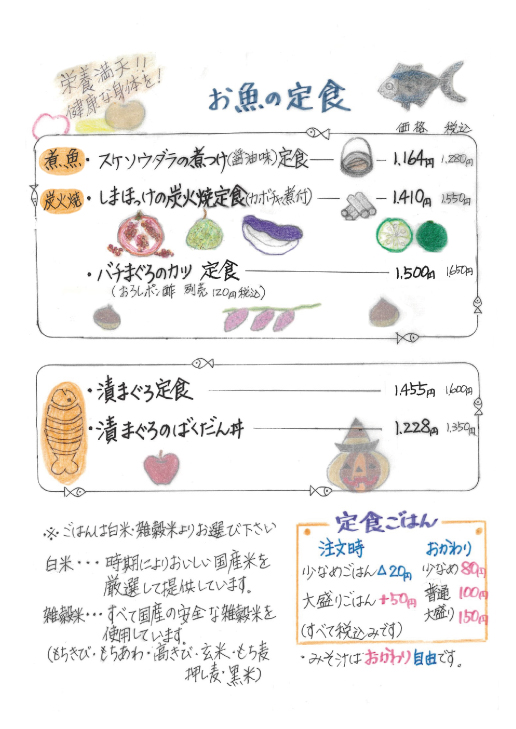 栄養満天!!
健康な身体を!
お魚の定食
価格 税込
煮魚・スケソウダラの煮つけ(醤油味)定食 1.164円 1,280円
炭火焼・しまほっけの炭火焼定食(カボチャ煮付) 1.410円 1,550円
・バチまぐろのカツ 定食 1.500円 1,650円
(おろしポン酢 別売 120円税込)
・漬まぐろ定食 1.455円 1,600円
・漬まぐろのばくだん丼 1.228円 1,350円
※ごはんは白米・雑穀米よりお選び下さい
白米・・・時期によりおいしい国産米を
厳選して提供しています。
雑穀米・・・すべて国産の安全な雑穀米を
使用しています。
(もちきび・もちあわ・高きび・玄米・もち麦
押し麦・黒米)
定食ごはん
注文時 おかわり
少なめごはん△20円 少なめ80円
大盛りごはん+50円 普通100円
(すべて税込みです) 大盛り150円
・みそ汁はおかわり自由です。